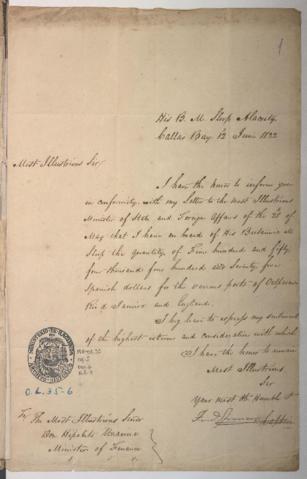 1
His B. M. Sloop Alacrity
Callao Bay 12 June 1822
Most Illustrious Sir
I have the honor to inform you
in conformity with my Letter to the Most Illustrious
Minister of State and Foreign Affairs of the 28
May that I have on board of His Britannic M
Sloop the quantity of Four hundred and fifty
four thousand four hundred and Seventy five
Spanish dollars for the various ports of Valparaiso
Rio d Janeiro and England.
I beg here to express my
of the highest esteem and consideration with which
I have the honor to remain
Most Illustrious
Sir
Your Most Ob. Humble St.
O.L. 35-6
To The Most Illustrious Señor
Don Hipolito Unanue
Minister of Finance